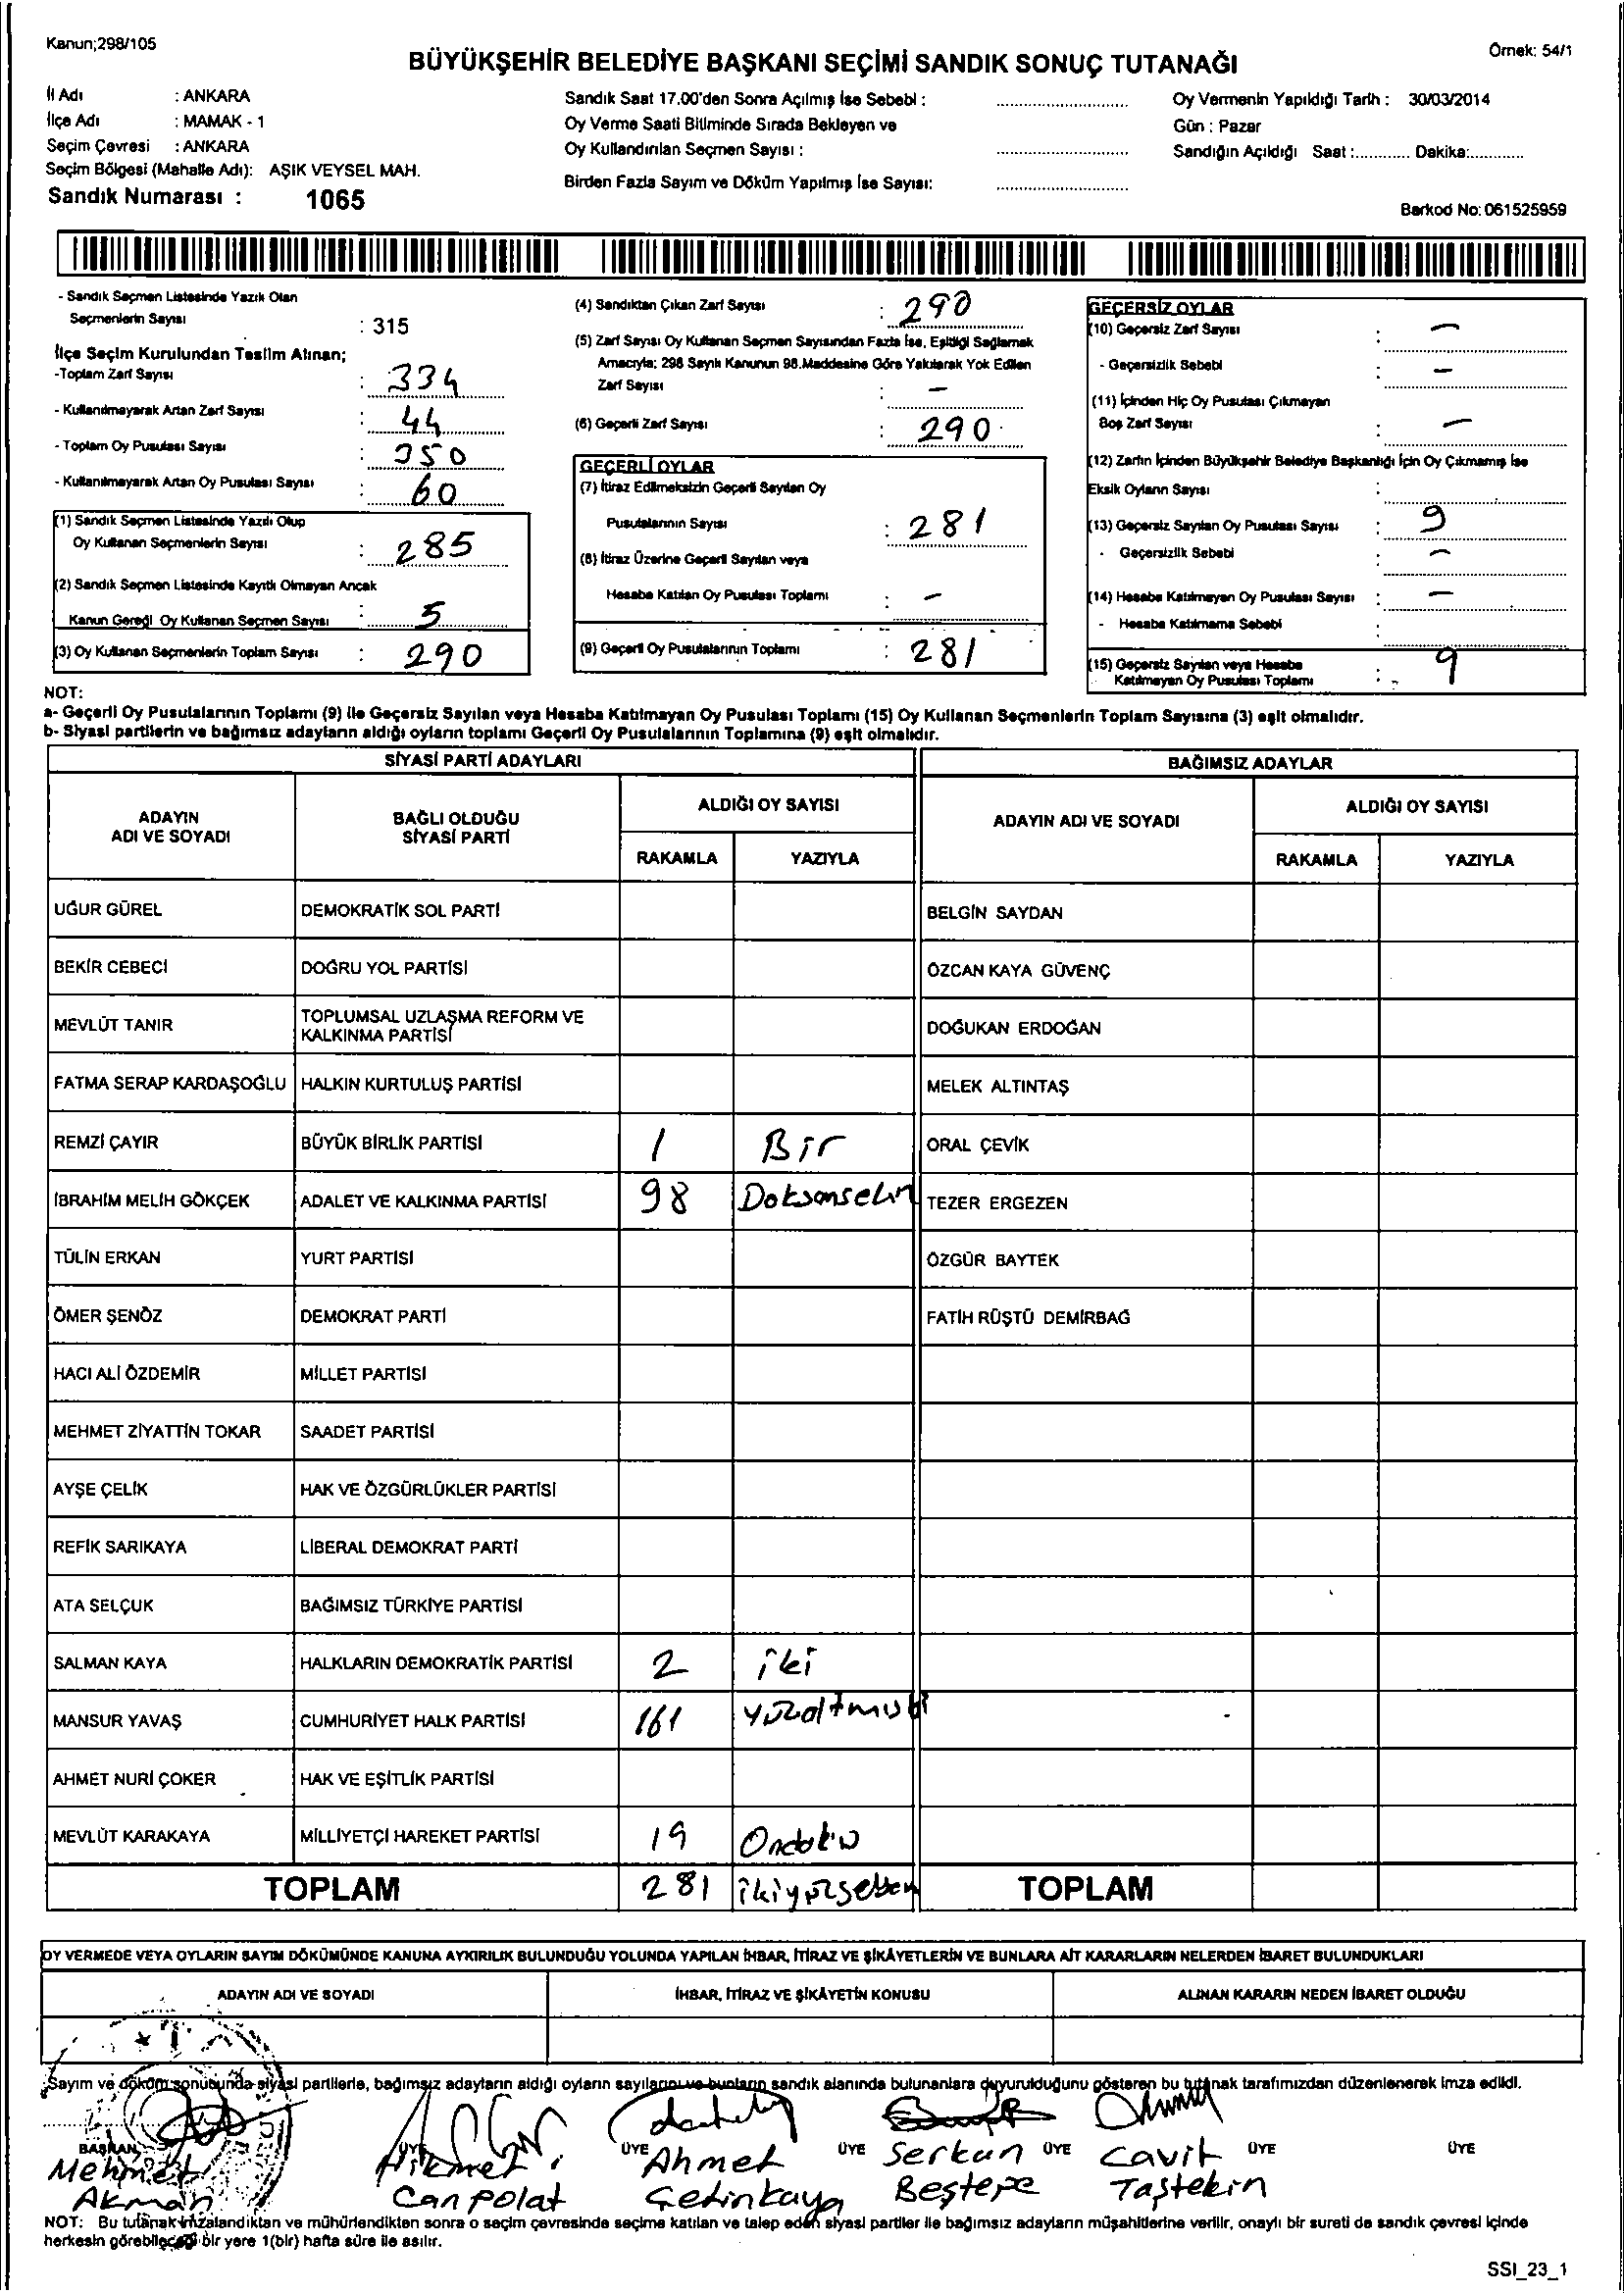 Kanun;298/105
Örnek: 54/1
BÜYÜKŞEHİR BELEDİYE BAŞKANI SEÇİMİ SANDIK SONUÇ TUTANAĞI
İl Adı : ANKARA
İlçe Adı : MAMAK - 1
Seçim Çevresi : ANKARA
Seçim Bölgesi (Mahalle Adı): AŞIK VEYSEL MAH.
Sandık Numarası : 1065
Sandık Saat 17.00'den Sonra Açılmış İse Sebebi :
Oy Verme Saati Bitiminde Sırada Bekleyen ve
Oy Kullandırılan Seçmen Sayısı :
Birden Fazla Sayım ve Döküm Yapılmış İse Sayısı:
Oy Vermenin Yapıldığı Tarih : 30/03/2014
Gün : Pazar
Sandığın Açıldığı Saat :............ Dakika:............
Barkod No: 061525959
- Sandık Seçmen Listesinde Yazılı Olan
Seçmenlerin Sayısı : 315
İlçe Seçim Kurulundan Teslim Alınan;
-Toplam Zarf Sayısı : 334
- Kullanılmayarak Artan Zarf Sayısı : 44
- Toplam Oy Pusulası Sayısı : 350
- Kullanılmayarak Artan Oy Pusulası Sayısı : 60
(1) Sandık Seçmen Listesinde Yazılı Olup
Oy Kullanan Seçmenlerin Sayısı : 285
(2) Sandık Seçmen Listesinde Kayıtlı Olmayan Ancak
Kanun Gereği Oy Kullanan Seçmen Sayısı : 5
(3) Oy Kullanan Seçmenlerin Toplam Sayısı : 290
(4) Sandıktan Çıkan Zarf Sayısı : 290
(5) Zarf Sayısı Oy Kullanan Seçmen Sayısından Fazla İse, Eşitliği Sağlamak
Amacıyla; 298 Sayılı Kanunun 98.Maddesine Göre Yakılarak Yok Edilen
Zarf Sayısı : -
(6) Geçerli Zarf Sayısı : 290
GEÇERLİ OYLAR
(7) İtiraz Edilmeksizin Geçerli Sayılan Oy
Pusulalarının Sayısı : 281
(8) İtiraz Üzerine Geçerli Sayılan veya
Hesaba Katılan Oy Pusulası Toplamı : -
(9) Geçerli Oy Pusulalarının Toplamı : 281
GEÇERSİZ OYLAR
(10) Geçersiz Zarf Sayısı : -
- Geçersizlik Sebebi : -
(11) İçinden Hiç Oy Pusulası Çıkmayan
Boş Zarf Sayısı : -
(12) Zarfın İçinden Büyükşehir Belediye Başkanlığı İçin Oy Çıkmamış İse
Eksik Oyların Sayısı :
(13) Geçersiz Sayılan Oy Pusulası Sayısı : 9
- Geçersizlik Sebebi : -
(14) Hesaba Katılmayan Oy Pusulası Sayısı : -
- Hesaba Katılmama Sebebi :
(15) Geçersiz Sayılan veya Hesaba
Katılmayan Oy Pusulası Toplamı : 9
NOT:
a- Geçerli Oy Pusulalarının Toplamı (9) ile Geçersiz Sayılan veya Hesaba Katılmayan Oy Pusulası Toplamı (15) Oy Kullanan Seçmenlerin Toplam Sayısına (3) eşit olmalıdır.
b- Siyasi partilerin ve bağımsız adayların aldığı oyların toplamı Geçerli Oy Pusulalarının Toplamına (9) eşit olmalıdır.
SİYASİ PARTİ ADAYLARI
BAĞIMSIZ ADAYLAR
ADAYIN
ADI VE SOYADI
BAĞLI OLDUĞU
SİYASİ PARTİ
ALDIĞI OY SAYISI
RAKAMLA YAZIYLA
ADAYIN ADI VE SOYADI
ALDIĞI OY SAYISI
RAKAMLA YAZIYLA
UĞUR GÜREL DEMOKRATİK SOL PARTİ BELGİN SAYDAN
BEKİR CEBECİ DOĞRU YOL PARTİSİ ÖZCAN KAYA GÜVENÇ
MEVLÜT TANIR TOPLUMSAL UZLAŞMA REFORM VE
KALKINMA PARTİSİ DOĞUKAN ERDOĞAN
FATMA SERAP KARDAŞOĞLU HALKIN KURTULUŞ PARTİSİ MELEK ALTINTAŞ
REMZİ ÇAYIR BÜYÜK BİRLİK PARTİSİ 1 Bir ORAL ÇEVİK
İBRAHİM MELİH GÖKÇEK ADALET VE KALKINMA PARTİSİ 98 TEZER ERGEZEN
TÜLİN ERKAN YURT PARTİSİ ÖZGÜR BAYTEK
ÖMER ŞENÖZ DEMOKRAT PARTİ FATİH RÜŞTÜ DEMİRBAĞ
HACI ALİ ÖZDEMİR MİLLET PARTİSİ
MEHMET ZİYATTİN TOKAR SAADET PARTİSİ
AYŞE ÇELİK HAK VE ÖZGÜRLÜKLER PARTİSİ
REFİK SARIKAYA LİBERAL DEMOKRAT PARTİ
ATA SELÇUK BAĞIMSIZ TÜRKİYE PARTİSİ
SALMAN KAYA HALKLARIN DEMOKRATİK PARTİSİ 2 iki
MANSUR YAVAŞ CUMHURİYET HALK PARTİSİ 161
AHMET NURİ ÇOKER HAK VE EŞİTLİK PARTİSİ
MEVLÜT KARAKAYA MİLLİYETÇİ HAREKET PARTİSİ 19
TOPLAM 281 TOPLAM
OY VERMEDE VEYA OYLARIN SAYIM DÖKÜMÜNDE KANUNA AYKIRILIK BULUNDUĞU YOLUNDA YAPILAN İHBAR, İTİRAZ VE ŞİKÂYETLERİN VE BUNLARA AİT KARARLARIN NELERDEN İBARET BULUNDUKLARI
ADAYIN ADI VE SOYADI İHBAR, İTİRAZ VE ŞİKÂYETİN KONUSU ALINAN KARARIN NEDEN İBARET OLDUĞU
Sayım ve döküm sonucunda siyasi partilerle, bağımsız adayların aldığı oyların sayılarını ve bunların sandık alanında bulunanlara duyurulduğunu gösteren bu tutanak tarafımızdan düzenlenerek imza edildi.
BAŞKAN ÜYE ÜYE ÜYE ÜYE ÜYE ÜYE
Mehmet Hikmet Ahmet Serkan Cavit
Akman Canpolat Çetinkaya Beştepe Taştekin
NOT: Bu tutanak imzalandıktan ve mühürlendikten sonra o seçim çevresinde seçime katılan ve talep eden siyasi partiler ile bağımsız adayların müşahitlerine verilir, onaylı bir sureti de sandık çevresi içinde
herkesin görebileceği bir yere 1(bir) hafta süre ile asılır.
SSI_23_1